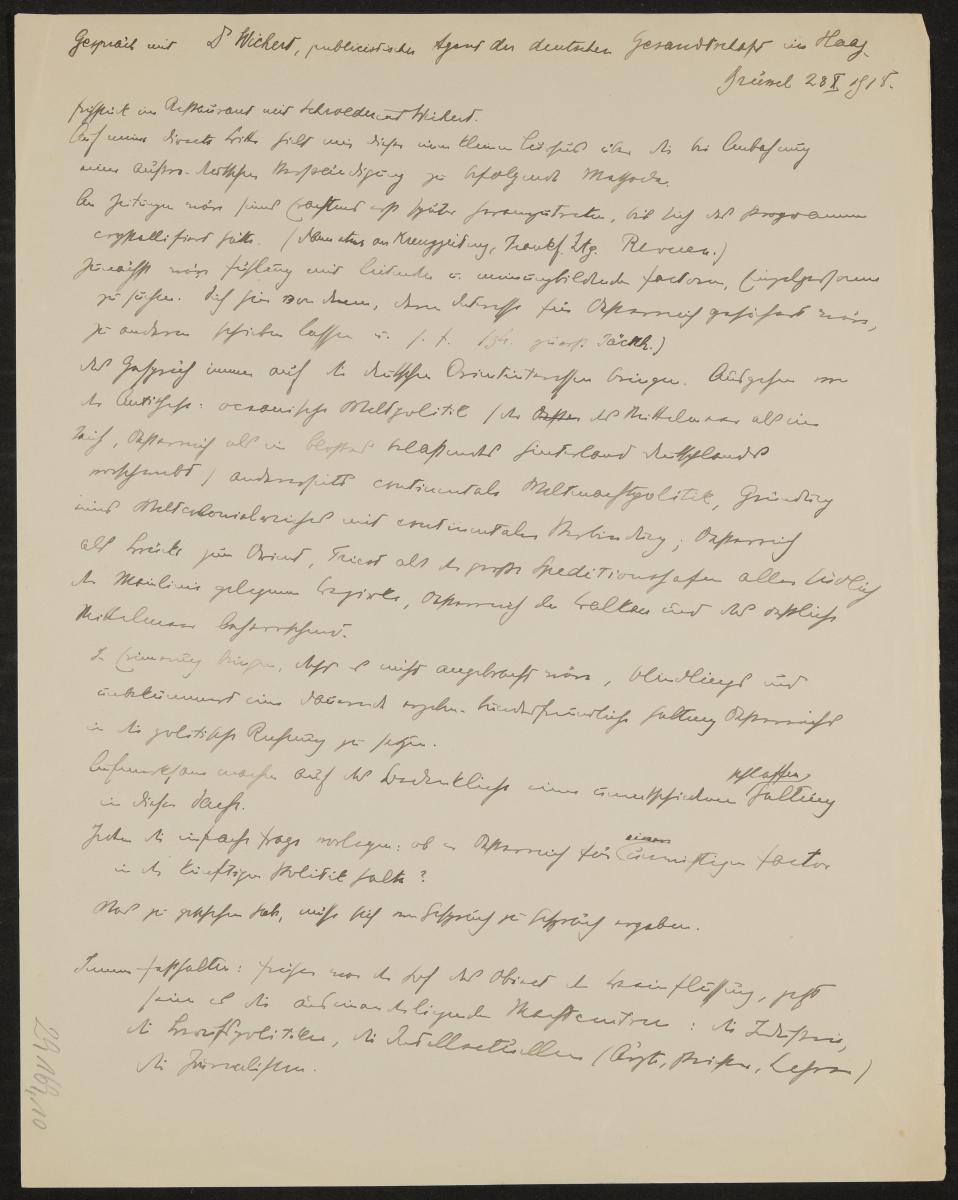 Gespräch mit Dr Wichert, publicistischer Agent der deutschen Gesandtschaft im Haag.
Brüssel 28 X 191
Frühstück im Restaurant mit Schroeder und Wichert.
Auf meine directe Bitte hielt mir dieser einen kleinen Cursus über die bei Anbahnung
einer austro-deutschen Verständigung zu befolgende Methode.
An Zeitungen wäre erst später heranzutreten, bis sich das Programm
crystallisiert hätte. (Kreuzzeitung, Frankf. Ztg. Revuen.)
Zunächst wäre Fühlung mit leitenden u. meinungbildenden Factoren, Einzelpersonen
zu suchen. Sich hier von denen, deren Interesse für Österreich gesichert wäre,
zu anderen schieben lassen u. s. f. (zuerst Jäckh.)
Das Gespräch immer auf die deutschen Orientinteressen bringen. Ausgehen von
der Antithese: oceanische Weltpolitik (die das Mittelmeer als ein
Österreich als ein blosses Hinterland Deutschlands
) anderseits continentale Weltmachtpolitik, Gründung
eines Weltcolonialreiches mit continentaler Verbindung; Österreich
als Brücke zum Orient, Triest als der grosse Speditionshafen aller südlich
der Mainlinie gelegenen Bezirke, Österreich den Balkan und das östliche
Mittelmeer beherrschend.
In Erinnerung bringen, dass es nicht angebracht wäre, blindlings und
unbekümmert eine dauernde bundesfreundliche Haltung Österreichs
in die politische Rechnung zu setzen.
Aufmerksam machen auf das Bedenkliche einer unentschiedenen schlaffen Haltung
in dieser Sache.
Jedem die einfache Frage vorlegen: ob er Österreich für einen Factor
in der künftigen Politik halte?
Was zu geschehen habe, müsse sich von Gespräch zu Gespräch ergeben.
Immer festhalten: früher war der Hof das Object der Beeinflussung, jetzt
seien es die auseinanderliegenden Machtcentren: die Industrie,
die Berufspolitiker, die Intellectuellen (Ärzte, Lehrer)
die Journalisten.